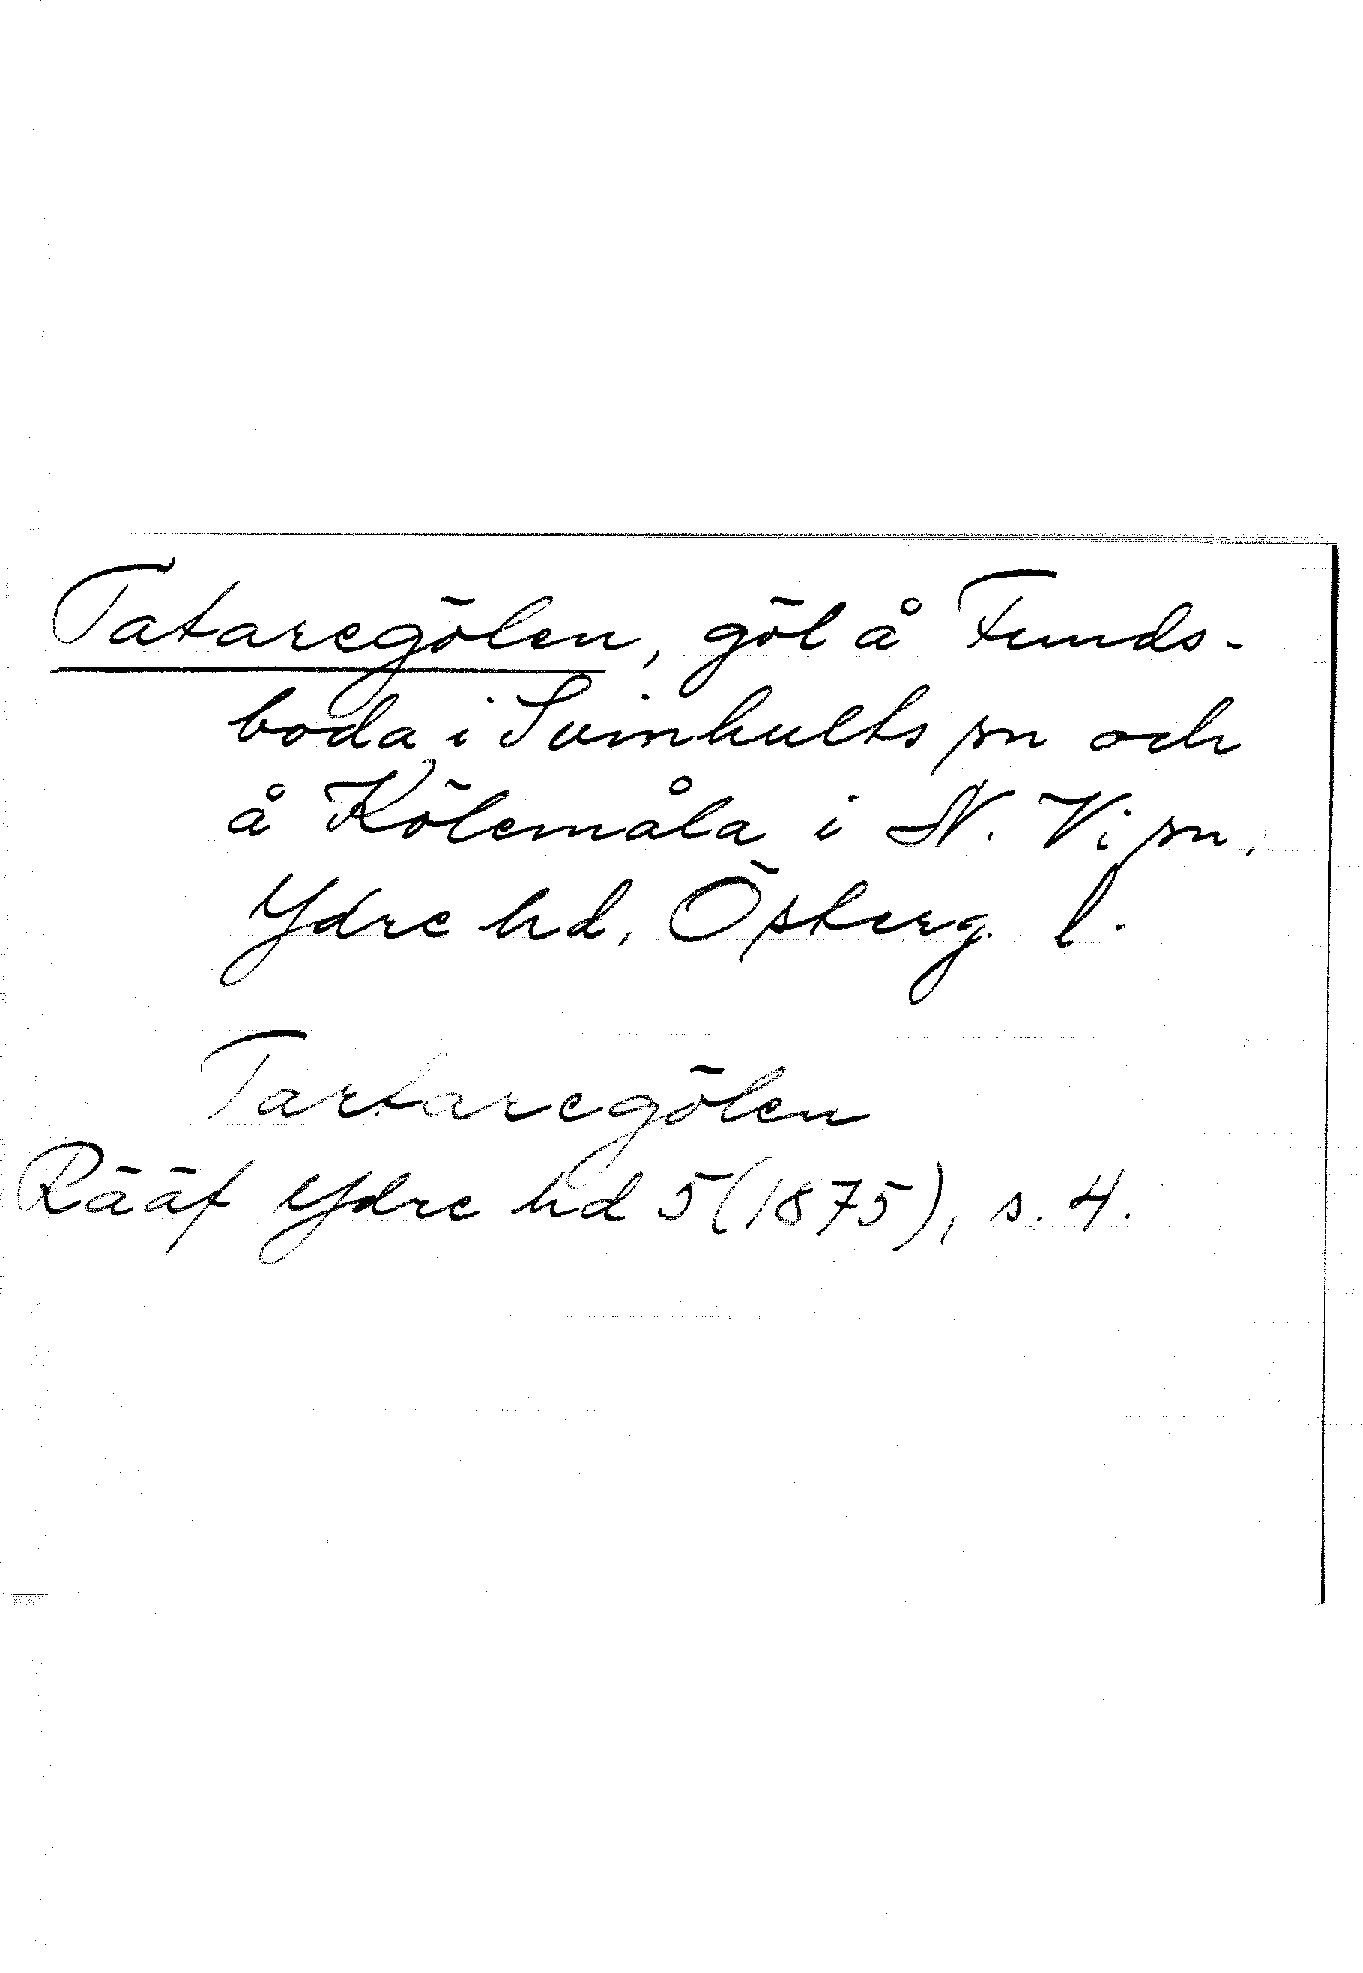 Tataregölen, göl å Funds-
boda i Svinhults sn och
å Kölemåla i N. Vi sn,
Ydre hd, Österg. l.
Tartaregölen
Rääf Ydre hd 5 (1875), s. 4.